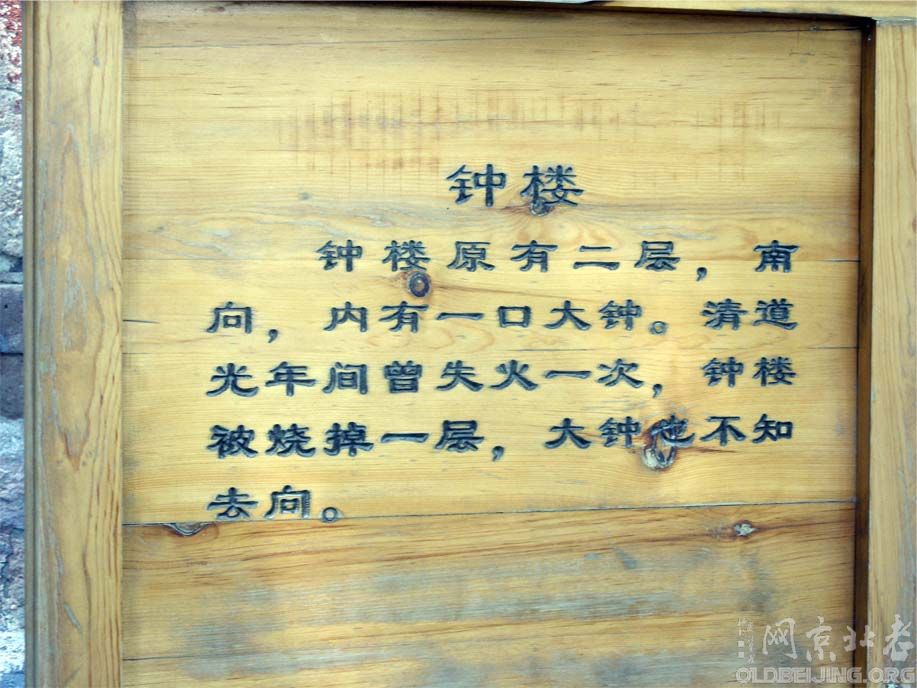 钟楼
钟楼原有二层，南
向，内有一口大钟。清道
光年间曾失火一次，钟楼
被烧掉一层，大钟也不知
去向。
网京北老
OLDBEIJING.ORG